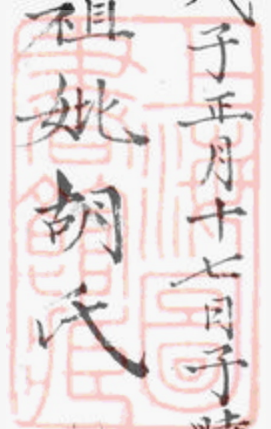 子正月十七日子時
祖妣胡氏